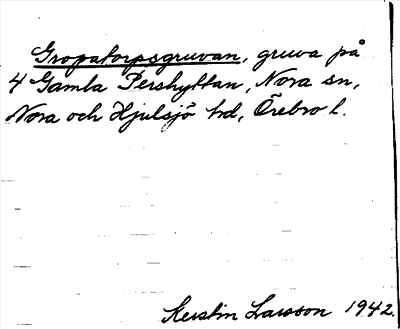 Gropatorpsgruvan, gruva på
4 Gamla Pershyttan, Nora sn,
Nora och Hjulsjö hd, Örebro l.
Kerstin Larsson 1942.